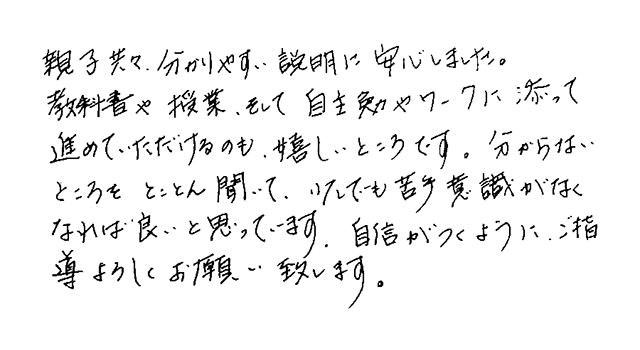 親子共々、分かりやすい説明に安心しました。
教科書や授業、そして自主勉やワークに添って
進めていただけるのも、嬉しいところです。分からない
ところをとことん聞いて、少しでも苦手意識がなく
なれば良いと思っています。自信がつくように、ご指
導よろしくお願い致します。